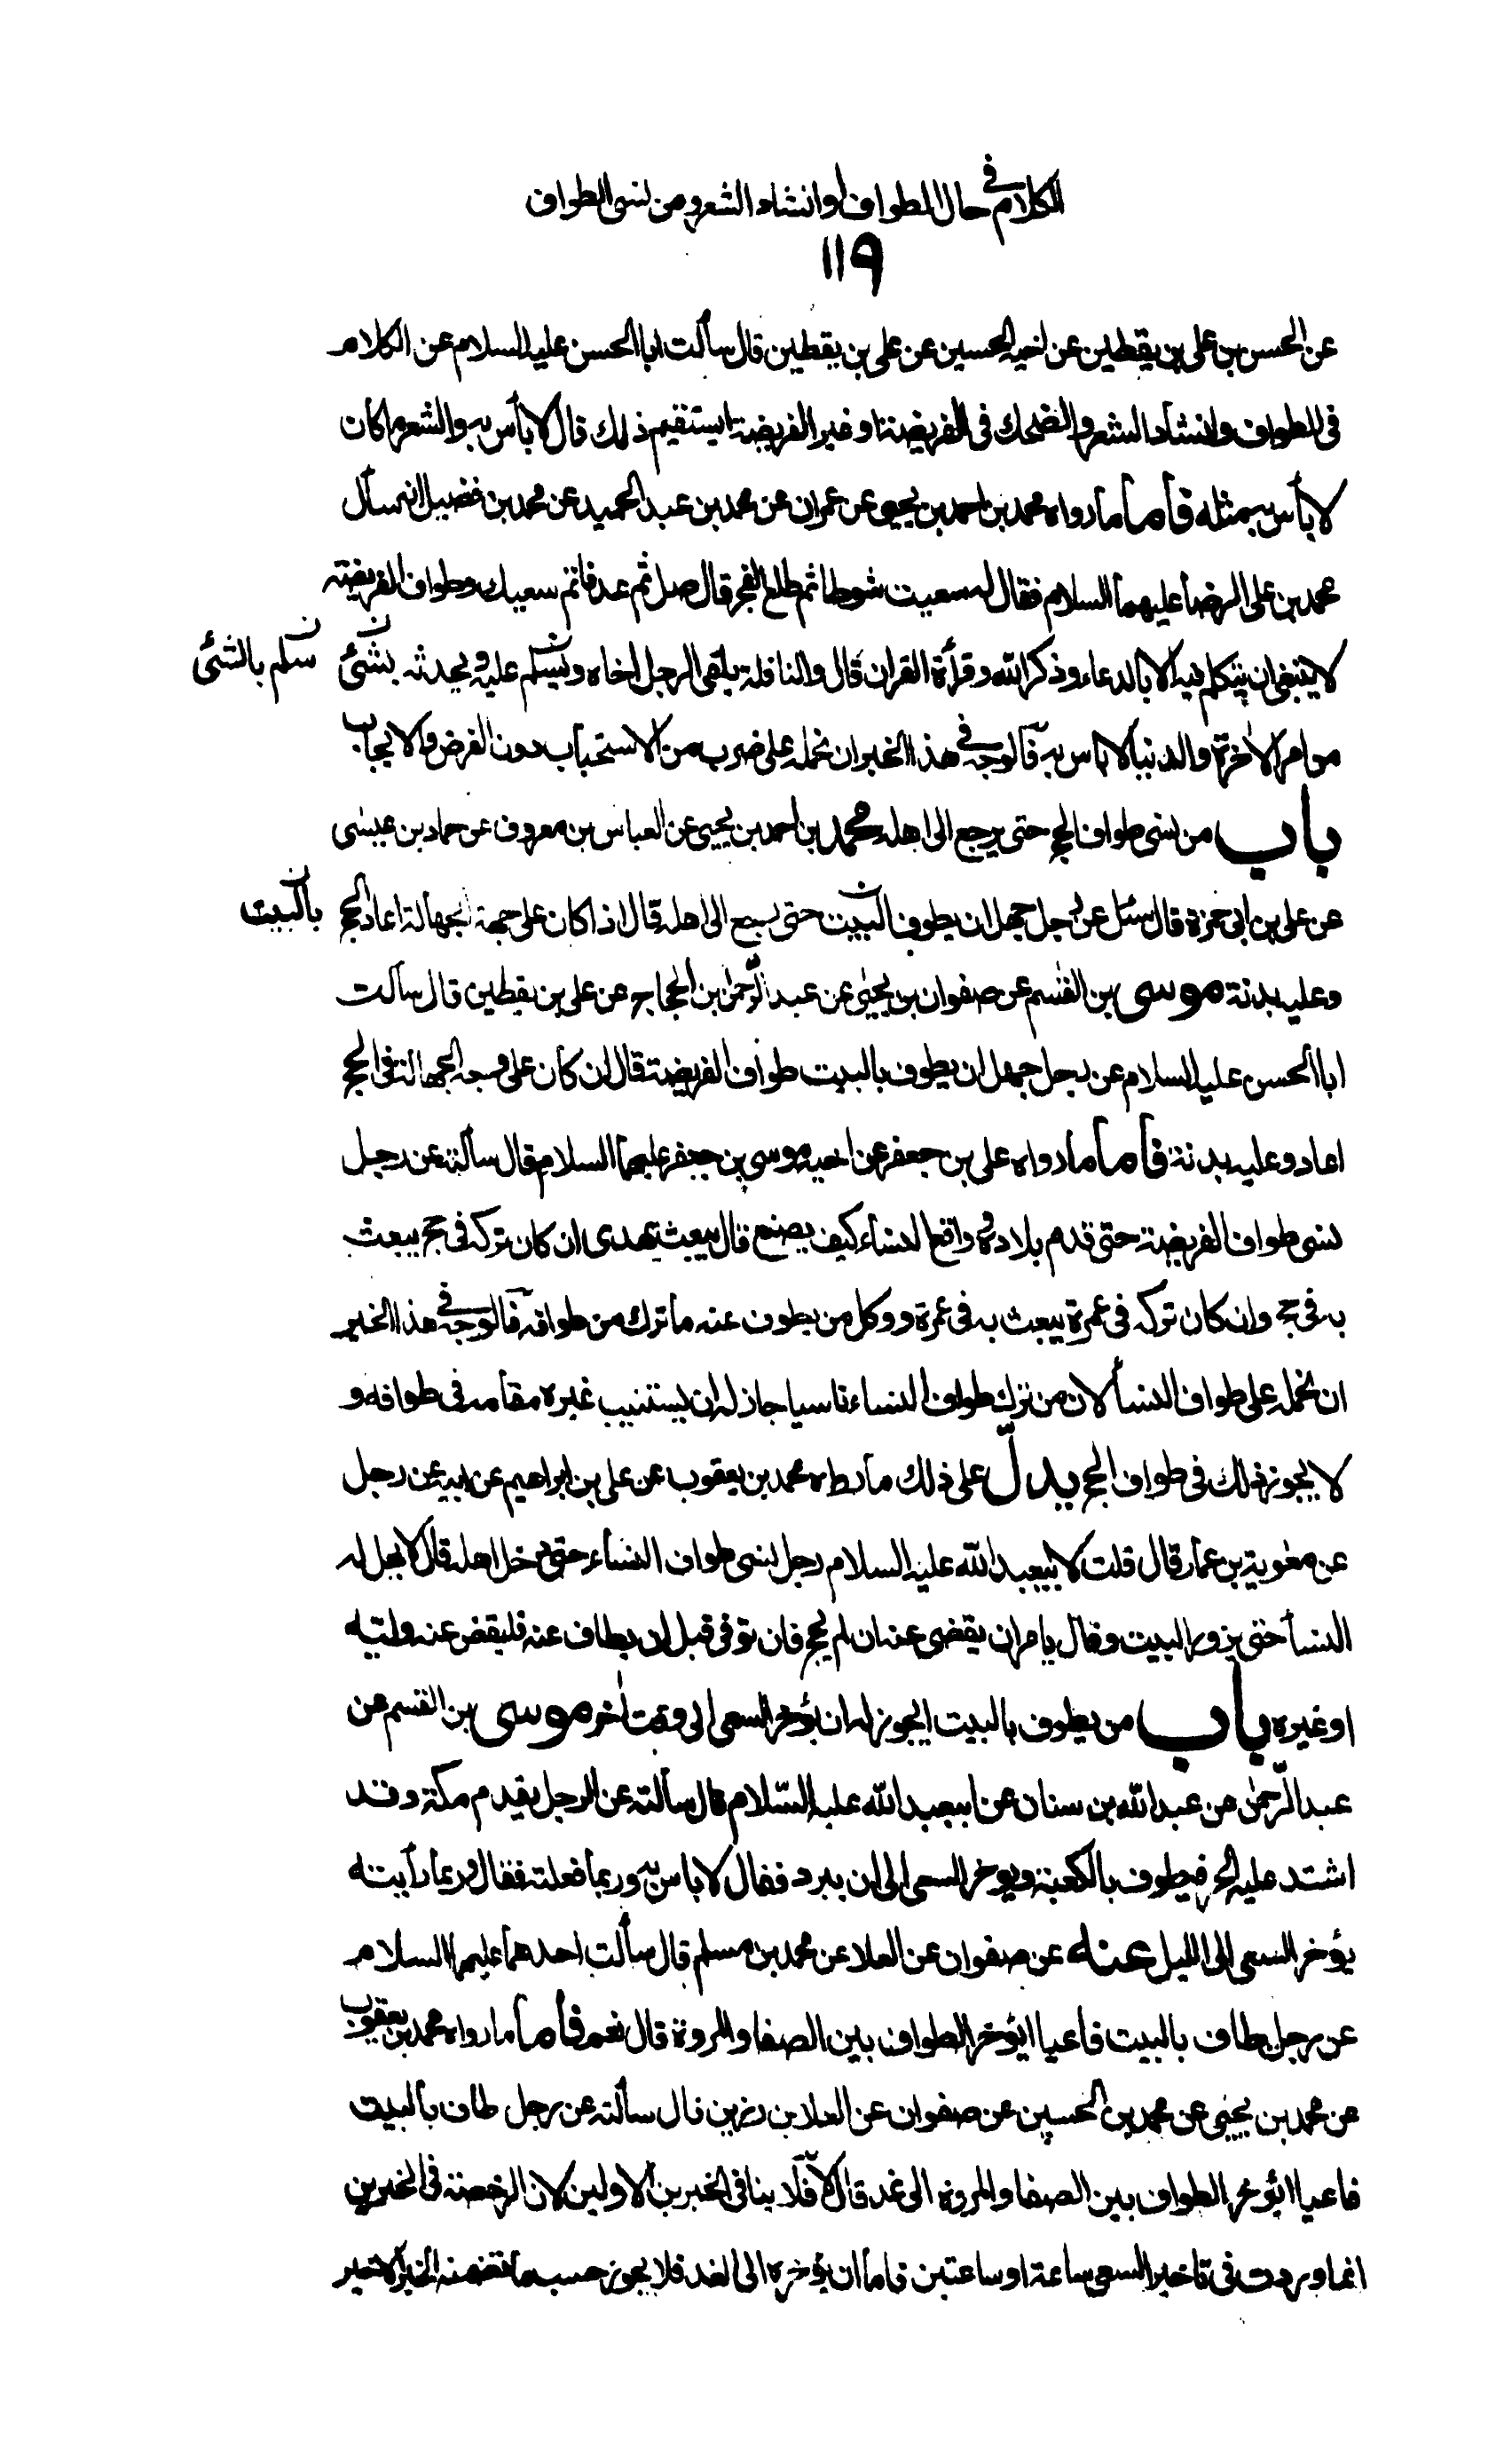 الكلام في حال الطواف وانشاد الشعر ومن نسى الطواف
١١٩
عن الحسن بن على بن يقطين عن اخيه الحسين عن على بن يقطين قال سألت ابا الحسن عليه السلام عن الكلام
فى الطواف وانشاد الشعر والضحك فى الفريضة او غير الفريضة ايستقيم ذلك قال لا بأس به والشعر ما كان
لا بأس بمثله فأما ما رواه محمد بن احمد بن يحيى عن عمران عن محمد بن عبد الحميد عن محمد بن فضيل انه سأل
محمد بن على الرضا عليهما السلام فقال له سعيت شوطا ثم طلع الفجر قال صل ثم عد فاتم سعيك وطواف الفريضة
لا ينبغى ان يتكلم فيه الا بالدعاء وذكر الله وقرأة القران قال والنافلة يلقى الرجل اخاه ويسلم عليه ويحدثه بشئ
سلم بالشئ
من امر الاخرة والدنيا لا باس به فالوجه في هذا الخبر ان نحمله على ضرب من الاستحباب دون الفرض والايجاب
باب من نسى طواف الحج حتى يرجع الى اهله محمد بن احمد بن يحيى عن العباس بن معروف عن حماد بن عيسى
عن على بن ابى حمزة قال سئل عن رجل جهل ان يطوف البيت حتى يرجع الى اهله قال اذا كان على جهة الجهالة اعاد الحج
بالبيت
وعليه بدنة موسى بن القسم عن صفوان بن يحيى عن عبد الرحمن بن الحجاج عن على بن يقطين قال سألت
ابا الحسن عليه السلام عن رجل جهل ان يطوف بالبيت طواف الفريضة قال ان كان على وجه الجهالة فى الحج
اعاد وعليه بدنة فأما ما رواه على بن جعفر عن اخيه موسى بن جعفر عليهما السلام قال سألته عن رجل
نسى طواف الفريضة حتى قدم بلاده وواقع النساء كيف يصنع قال يبعث بهدى ان كان تركه فى حج يبعث
به فى حج وان كان تركه فى عمرة يبعث به فى عمرة ووكل من يطوف عنه ما ترك من طوافه فالوجه في هذا الخبر
ان نحمله على طواف النسأ لان من ترك طواف النساء ناسيا جاز له ان يستنيب غيره مقامه فى طوافه و
لا يجوز ذلك فى طواف الحج يدلّ على ذلك ما رواه محمد بن يعقوب عن على بن ابراهيم عن ابيه عن رجل
عن معوية بن عمار قال قلت لابيعبد الله عليه السلام رجل نسى طواف النساء حتى دخل اهله قال لا يحل له
النسأ حتى يزور البيت وقال يامر ان يقضى عنه ان لم يحج فان توفى قبل ان يطاف عنه فليقض عنه وليّه
او غيره باب من يطوف بالبيت ايجوز له ان يؤخر السعى الى وقت اخر موسى بن القسم عن
عبد الرّحمن عن عبد الله بن سنان عن ابيعبد الله عليه السّلام قال سألته عن الرجل يقدم مكة وقد
اشتد عليه الحر فيطوف بالكعبة ويوخر السعى الى ان يبرد فقال لا باس به وربما فعلته فقال وربما رأيته
يؤخر السعى الى الليل عنه عن صفوان عن العلا عن محمد بن مسلم قال سألت احدهما عليهما السلام
عن رجل طاف بالبيت فاعيا ايؤخر الطواف بين الصفا والمروة قال نعم فأما ما رواه محمد بن يعقوب
عن محمد بن يحيى عن محمد بن الحسين عن صفوان عن العلا بن رزين قال سألته عن رجل طاف بالبيت
فاعيا ايؤخر الطواف بين الصفا والمروة الى غد قال لا فلا ينافى الخبرين الاولين لان الرخصة فى الخبرين
انما وردت فى تاخير السعى ساعة او ساعتين فاما ان يؤخره الى الغد فلا يجوز حسب ما تضمنه الخبر الاخير